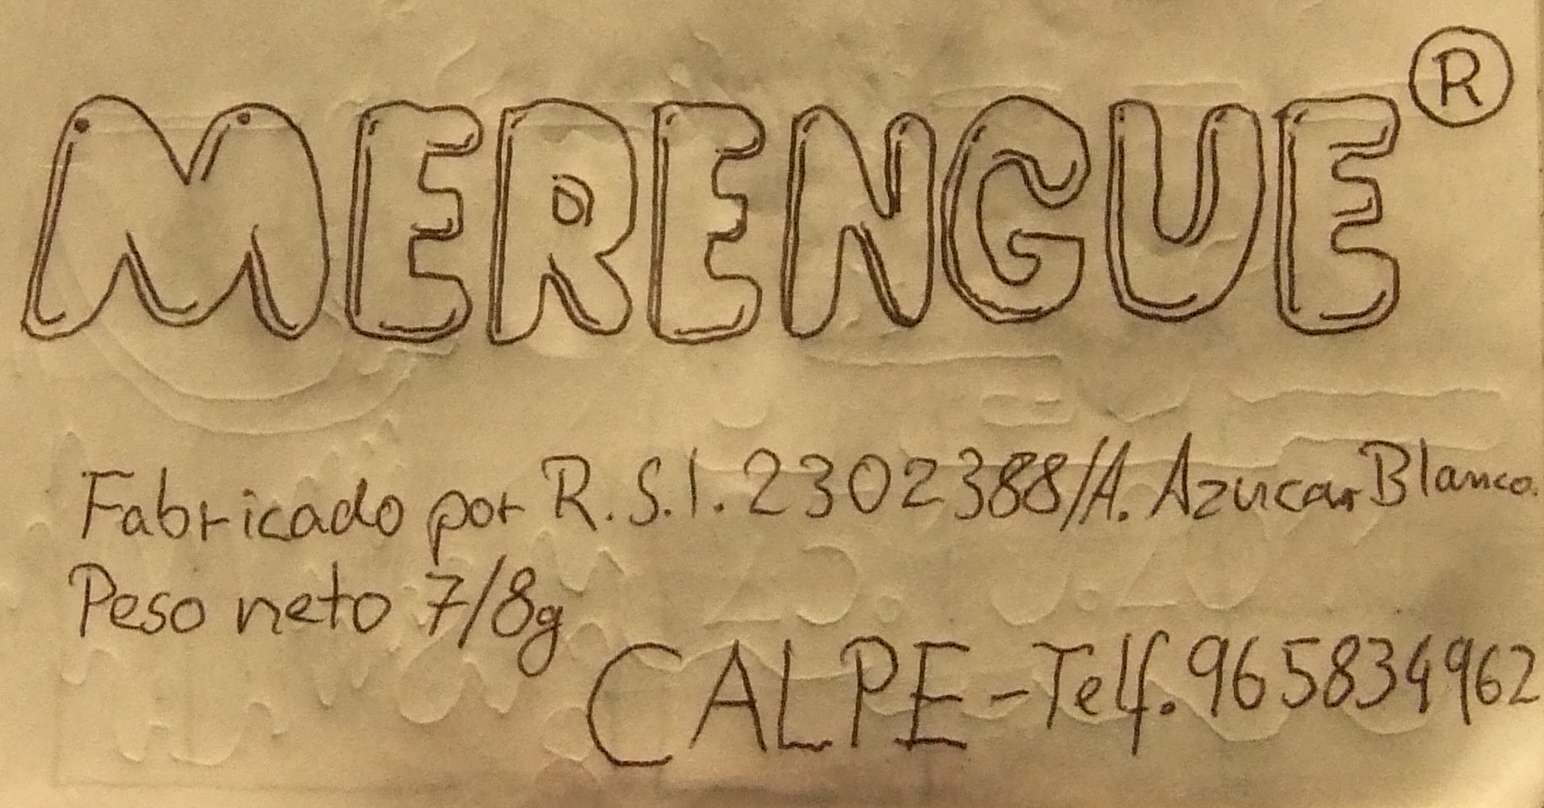 MERENGUE ®
Fabricado por R.S.I. 2302388/A. Azucar Blanco.
Peso neto 7/8g
CALPE - Telf. 965834962